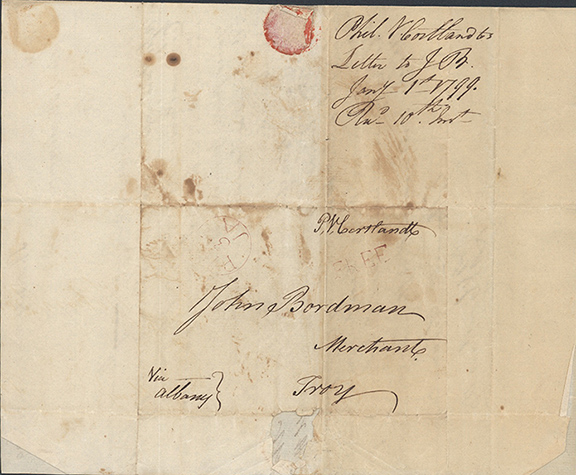 Phil. V Cortlandts
Letter to J B.
Jany 1st 1799.
Recd 10th Inst
P. V. Cortlandt
FREE
John Bordman
Merchant
Via
Albany
Troy